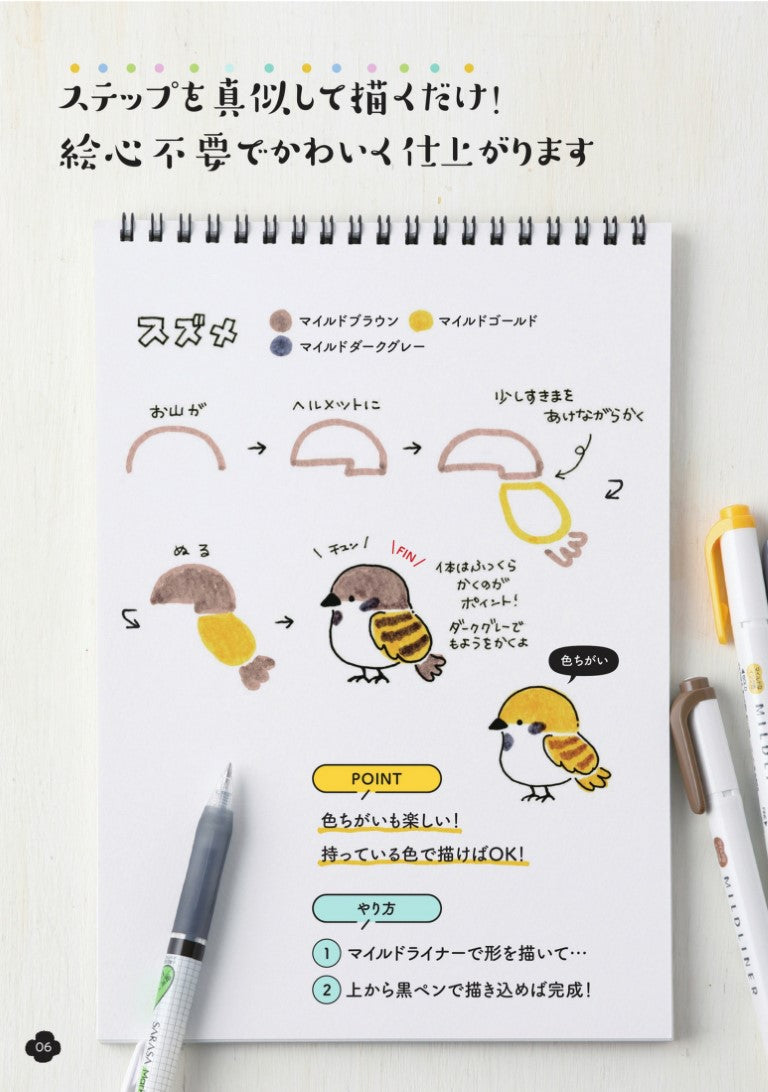 ステップを真似して描くだけ!
絵心不要でかわいく仕上がります
スズメ
マイルドブラウン
マイルドゴールド
マイルドダークグレー
お山が
ヘルメットに
少しすきまを
あけながらかく
ぬる
チュン
FIN
体はふっくら
かくのが
ポイント!
ダークグレーで
もようをかくよ
色ちがい
POINT
色ちがいも楽しい!
持っている色で描けばOK!
やり方
1 マイルドライナーで形を描いて…
2 上から黒ペンで描き込めば完成!
MILDLINER
SARASA
06